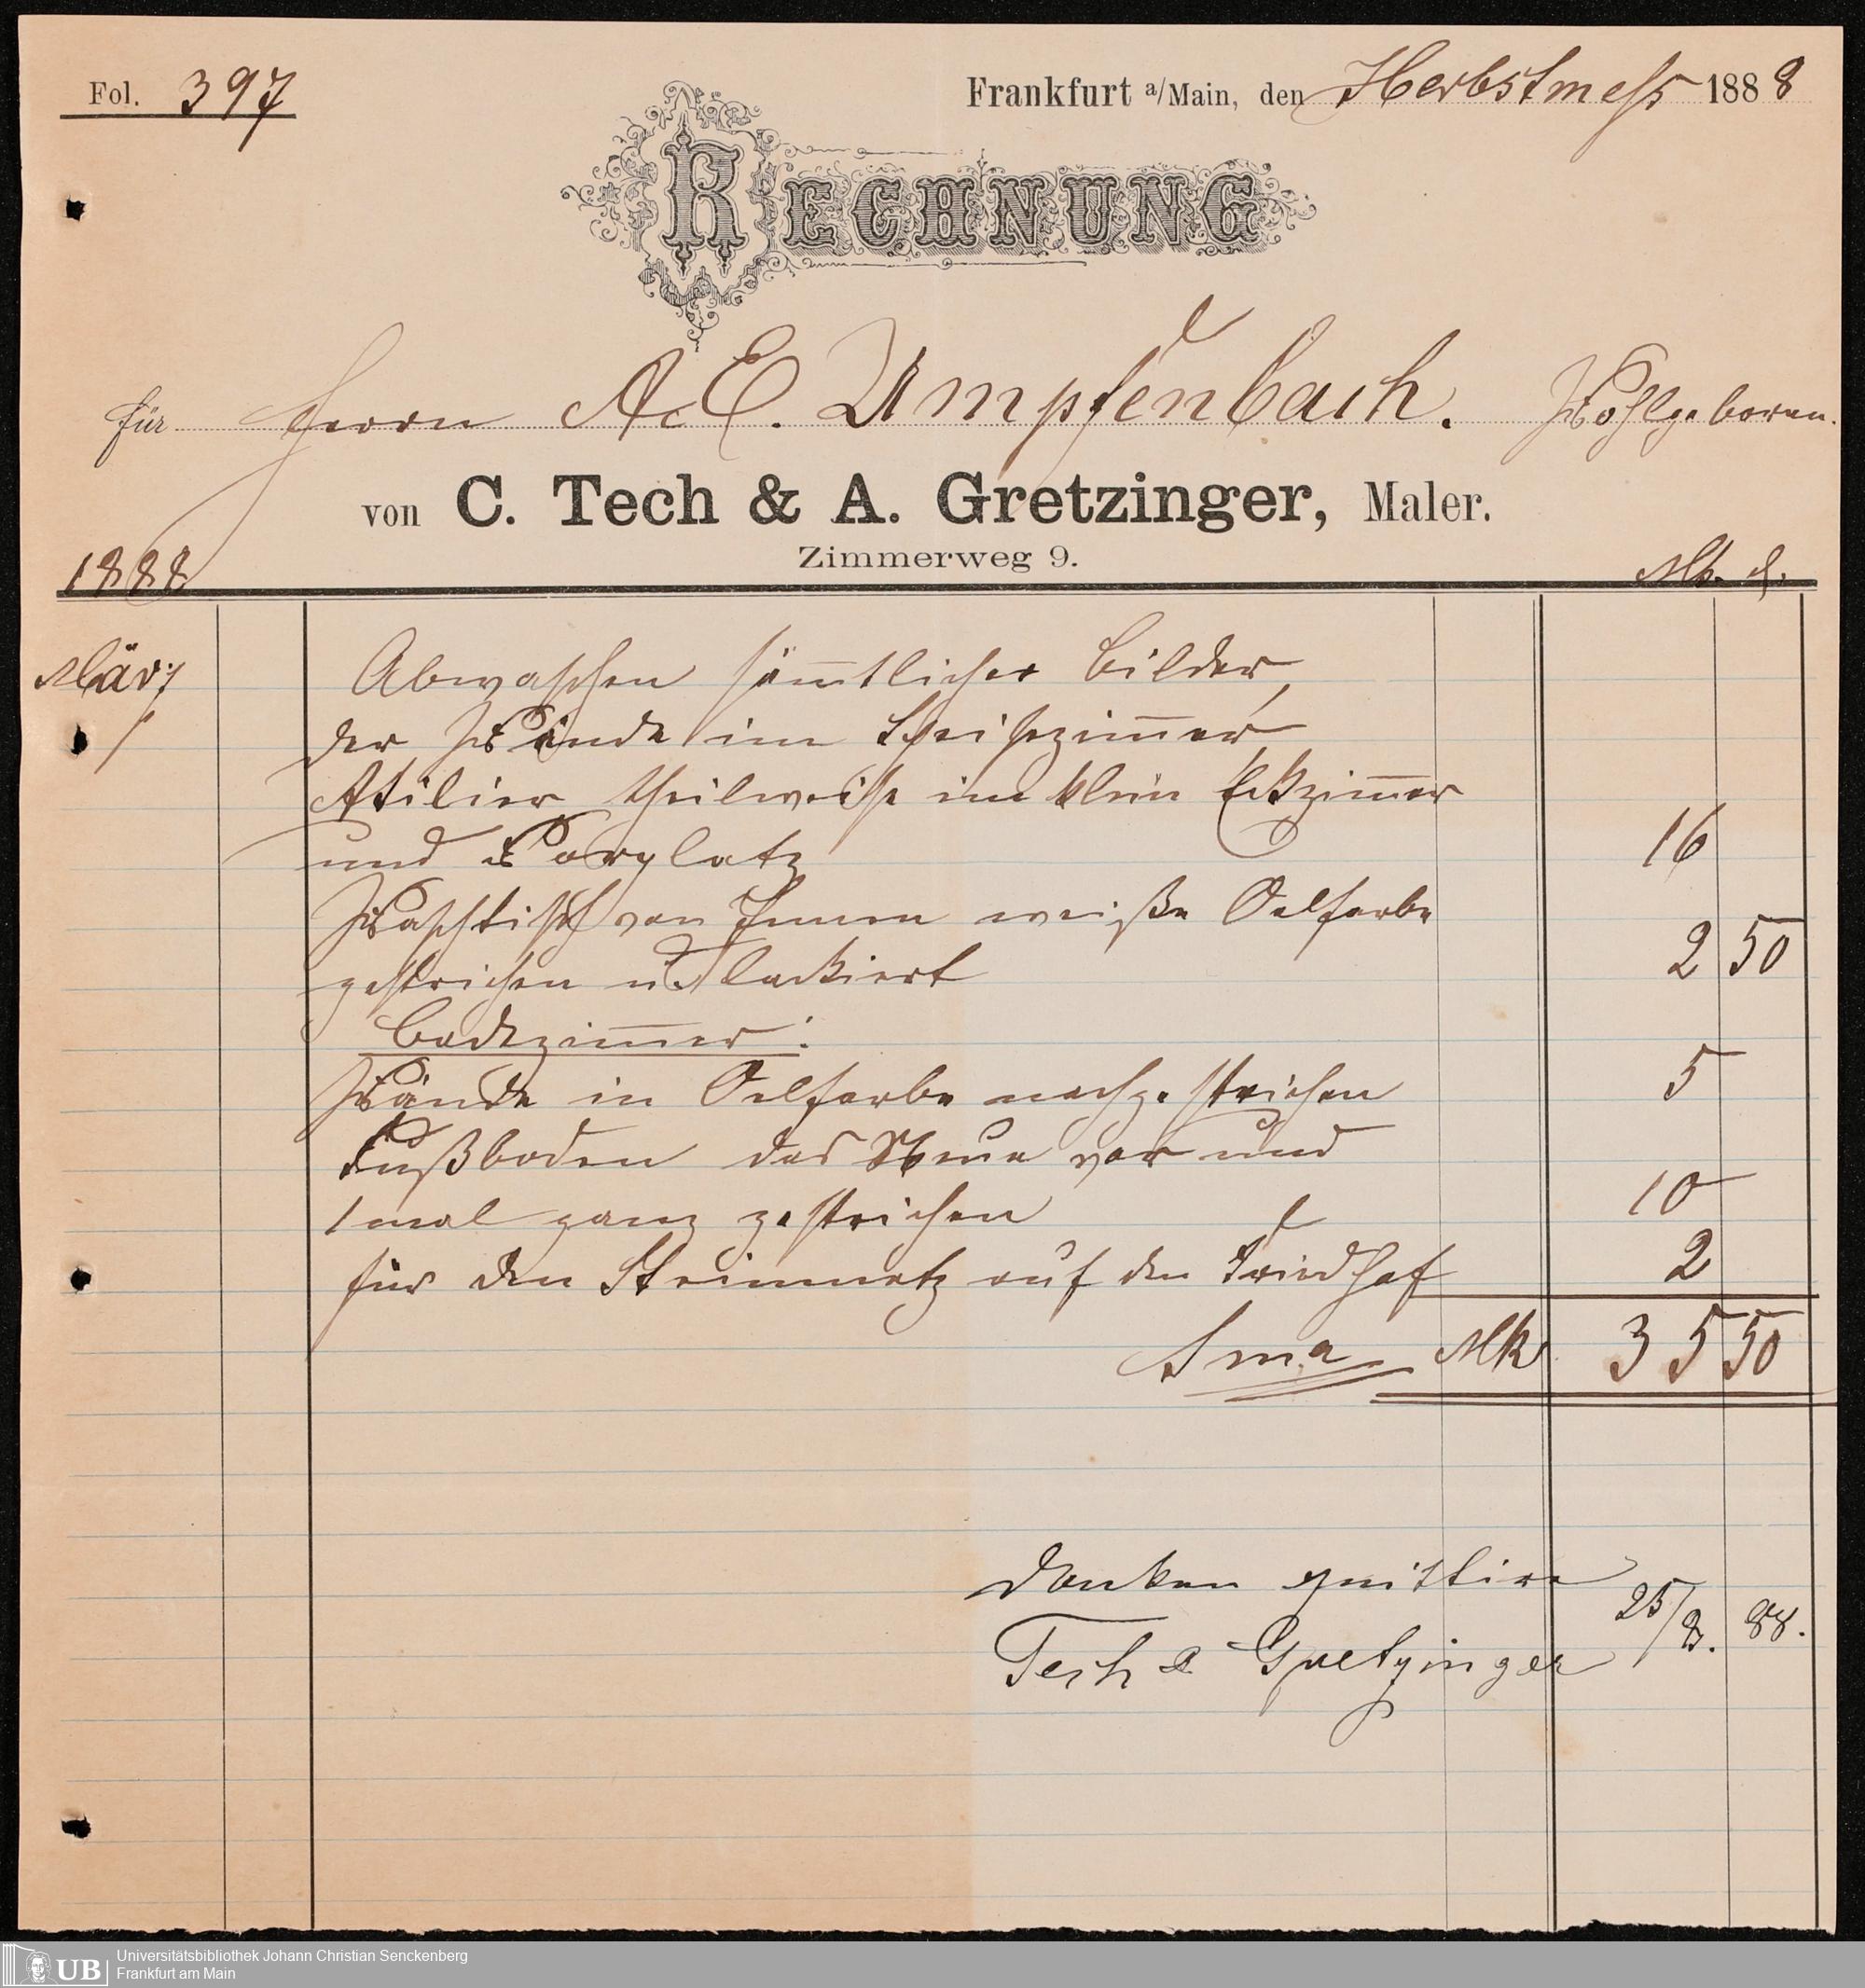 Fol. 397
Frankfurt a/Main, den Herbstmeß 1888
RECHNUNG
für Herrn A. E. Umpfenbach. Wohlgeboren.
von C. Tech & A. Gretzinger, Maler.
Zimmerweg 9.
1888 Mk. d.
März Abwaschen sämtlicher Bilder,
der Wände im Speisezimmer,
Atilier theilweise im klein Eckzimmer
und Vorplatz 16
Waschtisch von Innen weiße Oelfarbe
gestrichen u lackiert 2 50
Badezimmer:
Wände in Oelfarbe nachgestrichen 5
Fußboden das Neue vor und
1 mal ganz gestrichen 10
für den Steinmetz auf den Friedhof 2
Sma Mk 35 50
Danken quittire
Tech & Gretzinger 25/8. 88.
UB Universitätsbibliothek Johann Christian Senckenberg
Frankfurt am Main